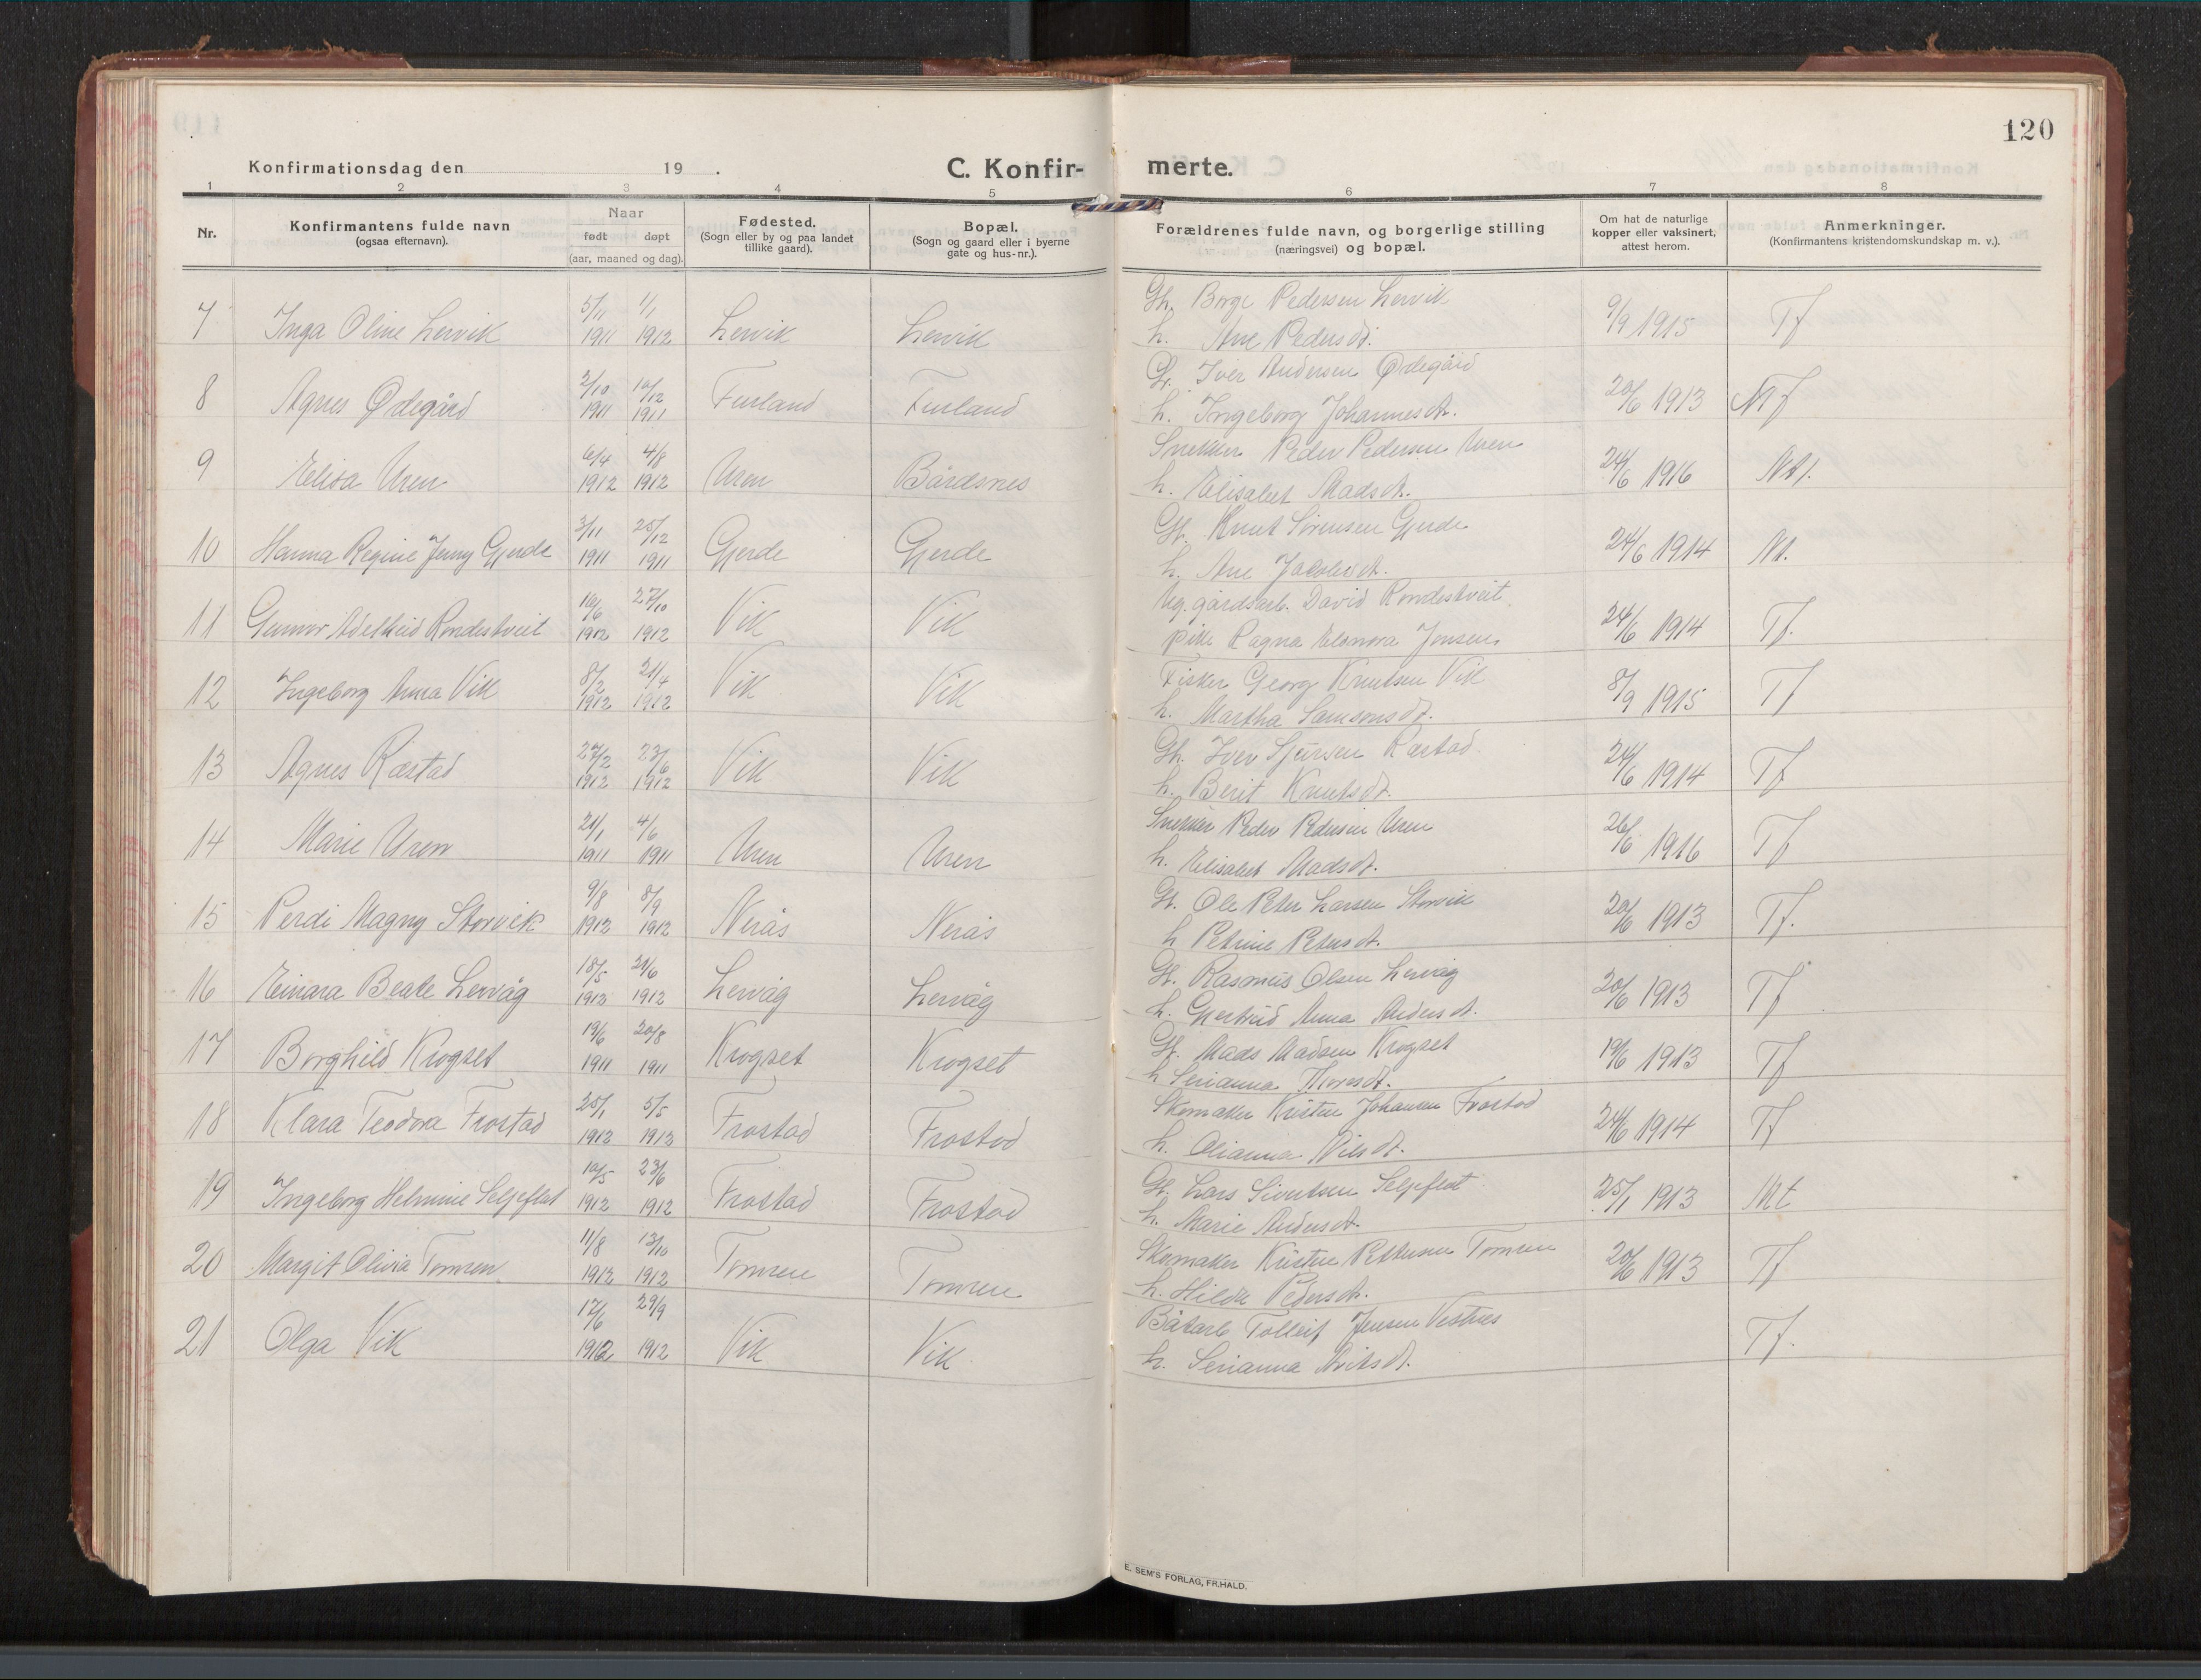 120
Konfirmationsdag den 19 .
C. Konfir- merte.
1 2 3 4 5 6 7 8
Nr.
Konfirmantens fulde navn
(ogsaa efternavn).
Naar
født døpt
(aar, maaned og dag).
Fødested.
(Sogn eller by og paa landet
tillike gaard).
Bopæl.
(Sogn og gaard eller i byerne
gate og hus-nr.).
Forældrenes fulde navn, og borgerlige stilling
(næringsvei) og bopæl.
Om hat de naturlige
kopper eller vaksinert,
attest herom.
Anmerkninger.
(Konfirmantens kristendomskundskap m. v.).
5/11 1/1 Gh. Børge Pedersen Lervik
7 Inga Oline Lervik 1911 1912 Lervik Lervik h. Ane Pedersdt. 9/9 1915 Tf
2/10 10/12 G. Iver Andersen Ødegård
8 Agnes Ødegård 1911 1911 Furland Furland h. Ingeborg Johannesdt. 20/6 1913 Mf
6/4 4/8 Snekker Peder Pedersen Uren
9 Elisa Uren 1912 1912 Uren Bårdsnes h. Elisabet Madsdt. 24/6 1916
3/11 25/12 G. Knut Sørensen Gjerde
10 Hanna Regine Jenny Gjerde 1911 1911 Gjerde Gjerde h. Ane Jacobsdt. 24/6 1914
10/6 27/10 Ug. gårdsarb. David Rondestveit
11 Gunvor Adelheid Rondestveit 1912 1912 Vik Vik pike Ragna Elonora Jensen 24/6 1914 Tf.
8/2 21/4 Fisker Georg Knutsen Vik
12 Ingeborg Anna Vik 1912 1912 Vik Vik h. Martha Samsonsdt. 8/9 1915 Tf
27/2 23/6 Gh. Iver Sjursen Ræstad
13 Agnes Ræstad 1912 1912 Vik Vik h. Berit Knutsdt. 24/6 1914 Tf
21/1 4/6 Snekker Peder Pedersen Uren
14 Marie Uren 1911 1911 Uren Uren h. Elisabet Madsdt. 26/6 1916 Tf
9/8 8/9 G. Ole Peter Larsen Storvik
15 Perdi Magny Storvik 1912 1912 Nerås Nerås h Petrine Petersdt. 20/6 1913 Tf.
18/5 21/6 G. Rasmus Olsen Lervåg
16 Einara Beate Lervåg 1912 1912 Lervåg Lervåg h. Gjertrud Anna Andersdt. 20/6 1913 Tf
19/6 20/8 G. Mads Madsen Krogset
17 Borghild Krogset 1911 1911 Krogset Krogset h Serianna 19/6 1913 Tf
25/1 5/5 Skomaker Kristen Johansen Frostad
18 Klara Teodora Frostad 1912 1912 Frostad Frostad h. Olianna Nilsdt. 24/6 1914 Tf
10/5 23/6 G. Lars Sivertsen Seljeflot
19 Ingeborg Helmine Seljeflot 1912 1912 Frostad Frostad h. Marie Andersdt. 25/1 1913 Mt
11/8 13/10 Skomaker Kristen Pettersen Tomren
20 Margit Olivia Tomren 1912 1912 Tomren Tomren h. Hilda Pedersdt. 20/6 1913 Tf
17/6 29/9 Båtarb Tolleif Jensen Vestnes
21 Olga Vik 1912 1912 Vik Vik h. Serianna Tf.
E. SEM'S FORLAG, FR.HALD.